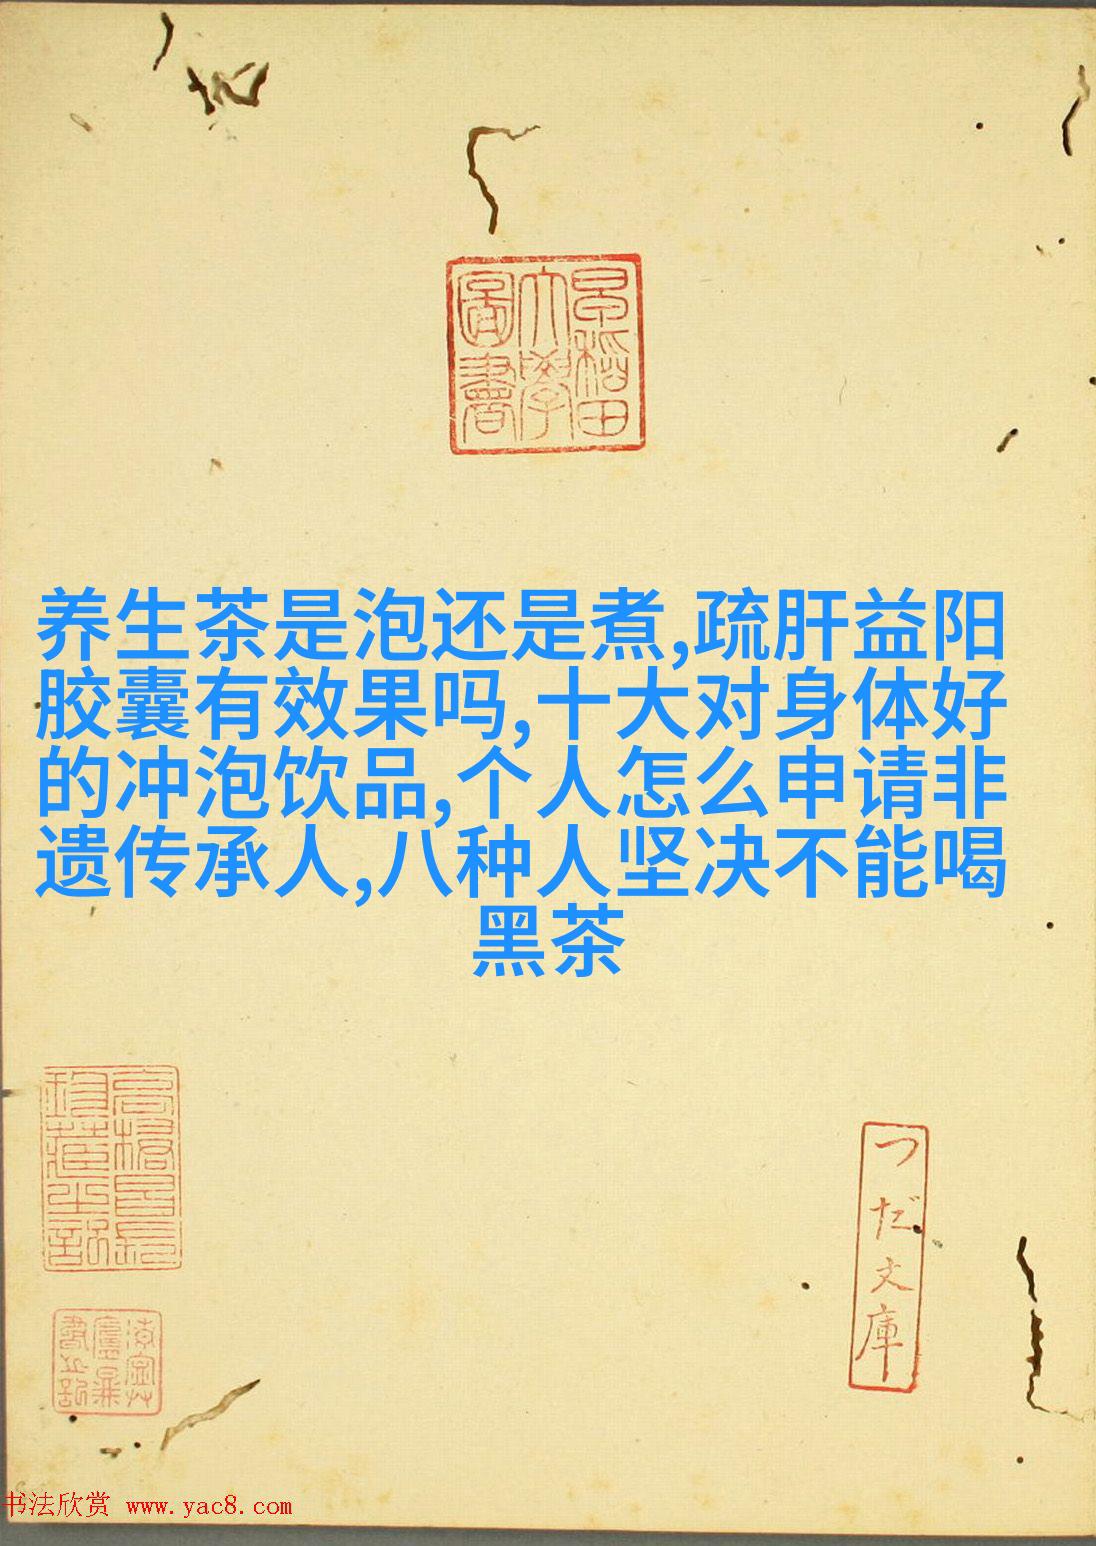 早稻田
大學
圖書
养生茶是泡还是煮,疏肝益阳
胶囊有效果吗,十大对身体好
的冲泡饮品,个人怎么申请非
遗传承人,八种人坚决不能喝
黑茶
つだ文庫
书法欣赏 www.yac8.com